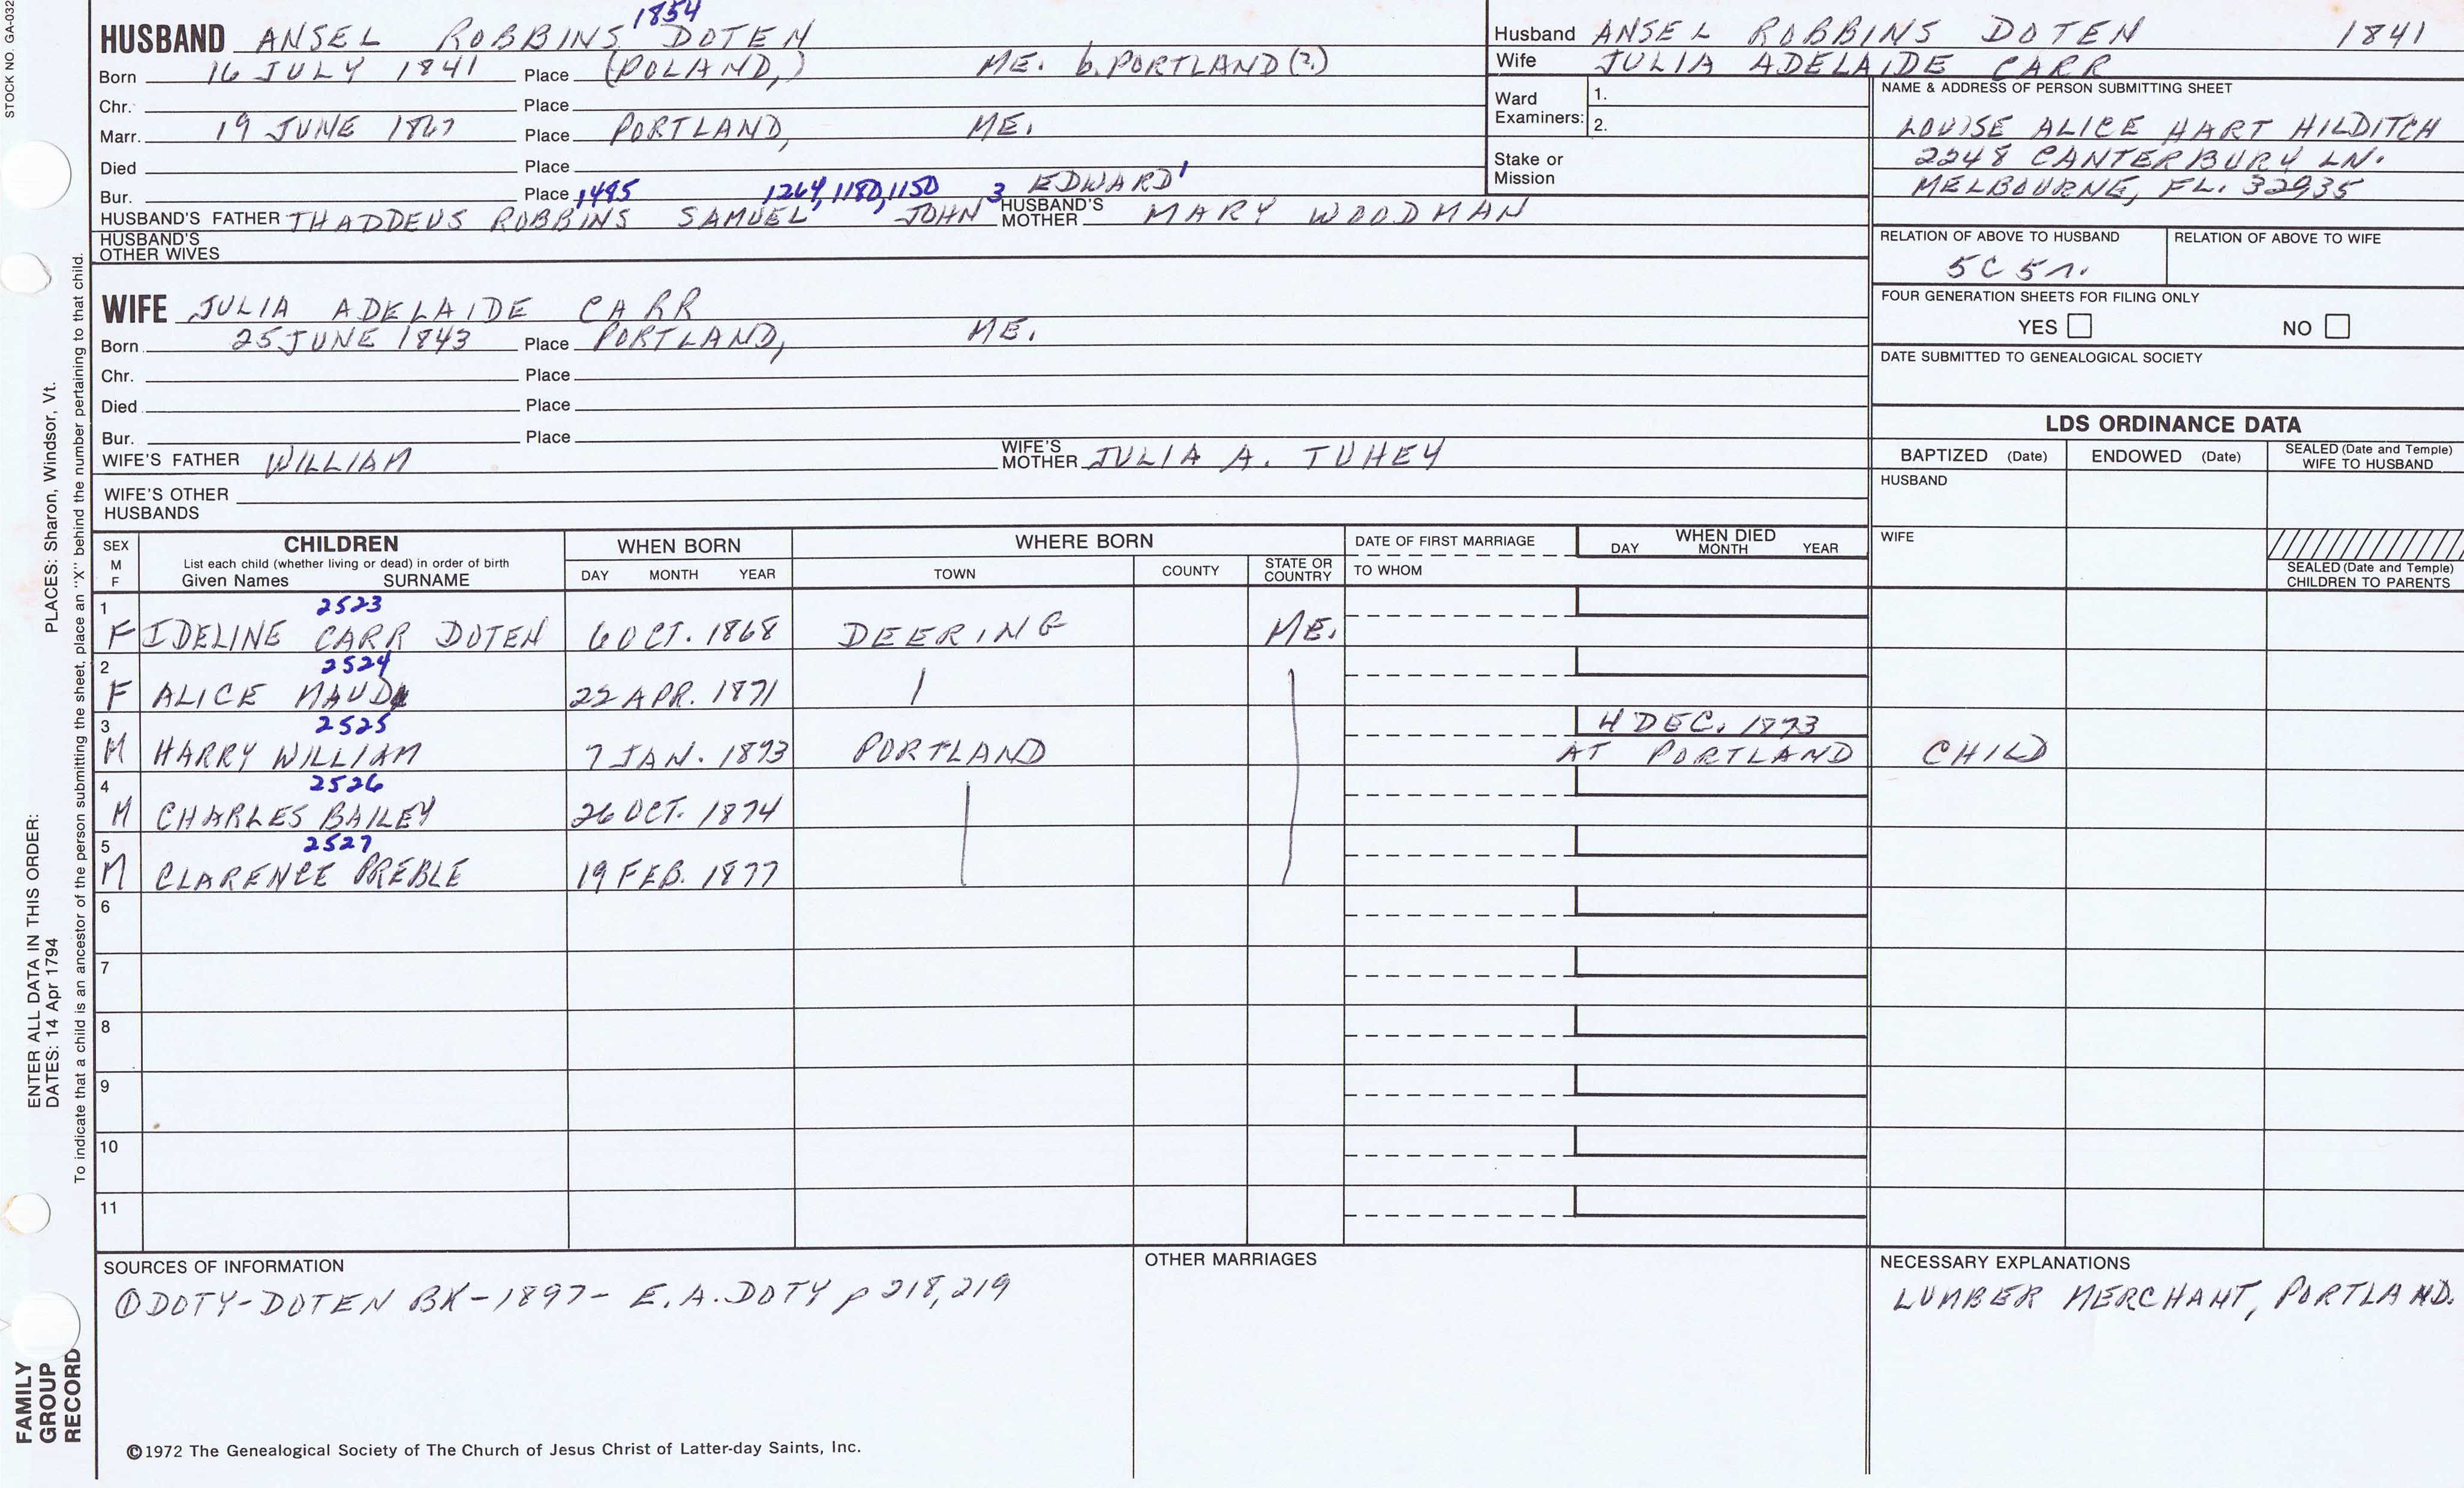 STOCK NO. GA-032
PLACES: Sharon, Windsor, Vt.
ENTER ALL DATA IN THIS ORDER:
DATES: 14 Apr 1794
To indicate that a child is an ancestor of the person submitting the sheet, place an "X" behind the number pertaining to that child.
FAMILY
GROUP
RECORD
1854
HUSBAND ANSEL ROBBINS DOTEN
Born 16 JULY 1841 Place (POLAND,) ME. b. PORTLAND (?)
Chr. Place
Marr. 19 JUNE 1867 Place PORTLAND, ME.
Died Place
Bur. Place 1495 1264, 1180, 1150 3 EDWARD 1
HUSBAND'S FATHER THADDEUS ROBBINS SAMUEL, JOHN HUSBAND'S MOTHER MARY WOODMAN
HUSBAND'S
OTHER WIVES
WIFE JULIA ADELAIDE CARR
Born 25 JUNE 1843 Place PORTLAND, ME.
Chr. Place
Died Place
Bur. Place
WIFE'S FATHER WILLIAM WIFE'S MOTHER JULIA A. TUHEY
WIFE'S OTHER
HUSBANDS
Husband ANSEL ROBBINS DOTEN 1841
Wife JULIA ADELAIDE CARR
Ward Examiners: 1.
2.
Stake or
Mission
NAME & ADDRESS OF PERSON SUBMITTING SHEET
LOUISE ALICE HART HILDITCH
2248 CANTERBURY LN.
MELBOURNE, FL. 32935
RELATION OF ABOVE TO HUSBAND RELATION OF ABOVE TO WIFE
5C 5r.
FOUR GENERATION SHEETS FOR FILING ONLY
YES NO
DATE SUBMITTED TO GENEALOGICAL SOCIETY
LDS ORDINANCE DATA
BAPTIZED (Date) ENDOWED (Date) SEALED (Date and Temple) WIFE TO HUSBAND
HUSBAND
WIFE
SEALED (Date and Temple)
CHILDREN TO PARENTS
SEX M F CHILDREN WHEN BORN WHERE BORN DATE OF FIRST MARRIAGE WHEN DIED
List each child (whether living or dead) in order of birth
Given Names SURNAME DAY MONTH YEAR TOWN COUNTY STATE OR COUNTRY TO WHOM DAY MONTH YEAR
1 2523
F IDELINE CARR DOTEN 6 OCT. 1868 DEERING ME.
2 2524
F ALICE MAUD 22 APR. 1871
3 2525 4 DEC. 1873
M HARRY WILLIAM 7 JAN. 1873 PORTLAND AT PORTLAND CHILD
4 2526
M CHARLES BAILEY 26 OCT. 1874
5 2527
M CLARENCE PREBLE 19 FEB. 1877
6
7
8
9
10
11
SOURCES OF INFORMATION
① DOTY-DOTEN BK-1897- E.A. DOTY p 218, 219
OTHER MARRIAGES
NECESSARY EXPLANATIONS
LUMBER MERCHANT, PORTLAND.
©1972 The Genealogical Society of The Church of Jesus Christ of Latter-day Saints, Inc.